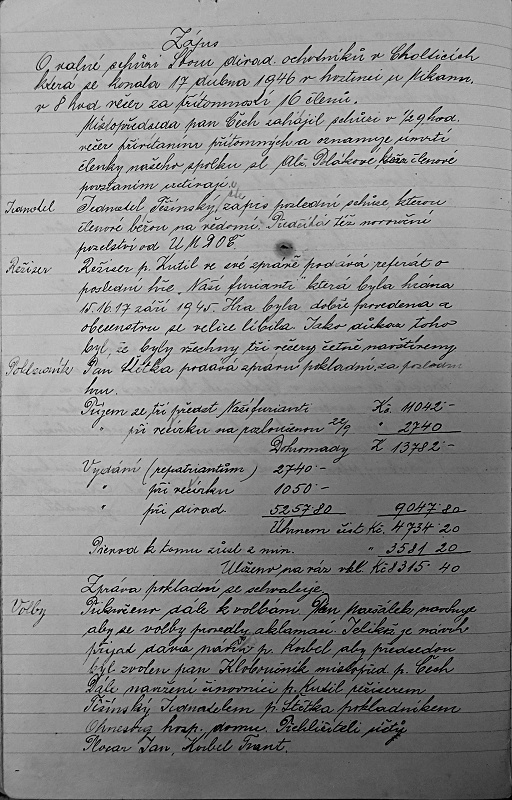 Zápis
O valné schůzi Sboru divad. ochotníků v Cholticích
která se konala 17 dubna 1946 v hostinci u Nikann.
v 8 hod večer za přítomnosti 16 členů.
Místopředseda pan Čěch zahájil schůzi v ½ 9 hod.
večer přivítáním přítomných a oznamuje úmrtí
členky našeho spolku sl. členové
povstáním uctívají.
Jednatel Jednatel Těšínský zápis poslední schůze kterou
členové běrou na vědomí. Předčítá též novoroční
od Ú M D O Č.
Režiser Režiser p. Kutil ve své zprávě podává referát o
poslední hře, Naši furianti která byla hrána
15. 16. 17 září 1945. Hra byla dobře provedena a
obecenstvu se velice líbila. Jako důkaz toho
byl, že byly všechny tři večery četně navštíveny
Pokladník Pan Štětka podává zprávu pokladní za poslední
hru.
Příjem se tří předst. Naši furianti Kč. 11042-
" při večírku na 22/9 " 2740
Dohromady K 13782-
Vydání (repatriantům) 2740-
" při večírku 1050-
" při divad. 5257 80 9047 80
Úhrnem čist. Kč. 4734 20
Převod k tomu zůst z min. " 3581 20
Uloženo na ráz vkl. Kč 8315 40
Zpráva pokladní se schvaluje.
Volby Přikročeno dále k volbám. Pan navrhuje
aby se volby provedly aklamací. Jelikož je návrh
přijad dává návrh p. Korbel, aby předsedou
byl zvolen pan Kloboučník místopřed. p. Čěch
Dále navrženi činovníci p. Kutil režiserem
Těšínský Jednatelem p. Štětka pokladníkem
hosp. domu. Přehlížiteli účtů
Plocar Jan, Korbel Frant.